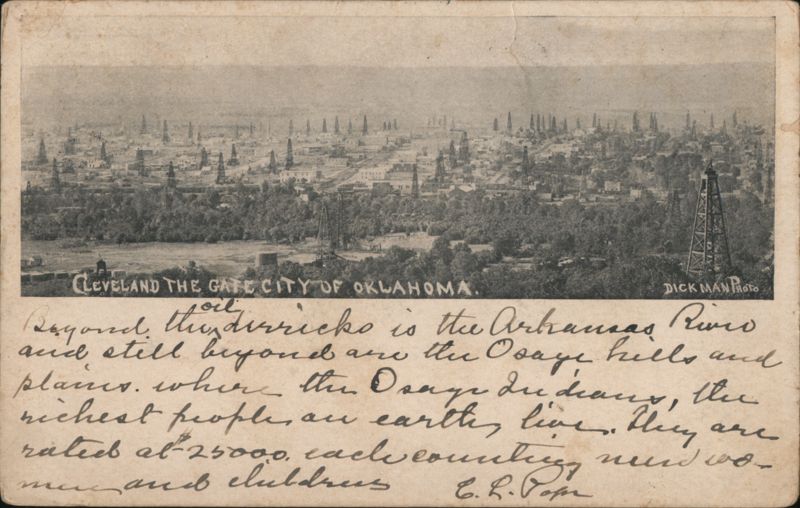 CLEVELAND THE GATE CITY OF OKLAHOMA.
DICKMAN PHOTO
Beyond the oil derricks is the Arkansas River
and still beyond are the Osage hills and
plains. where the Osage Indians, the
richest people on earth, live. They are
rated at $25000. each counting men wo-
men and children